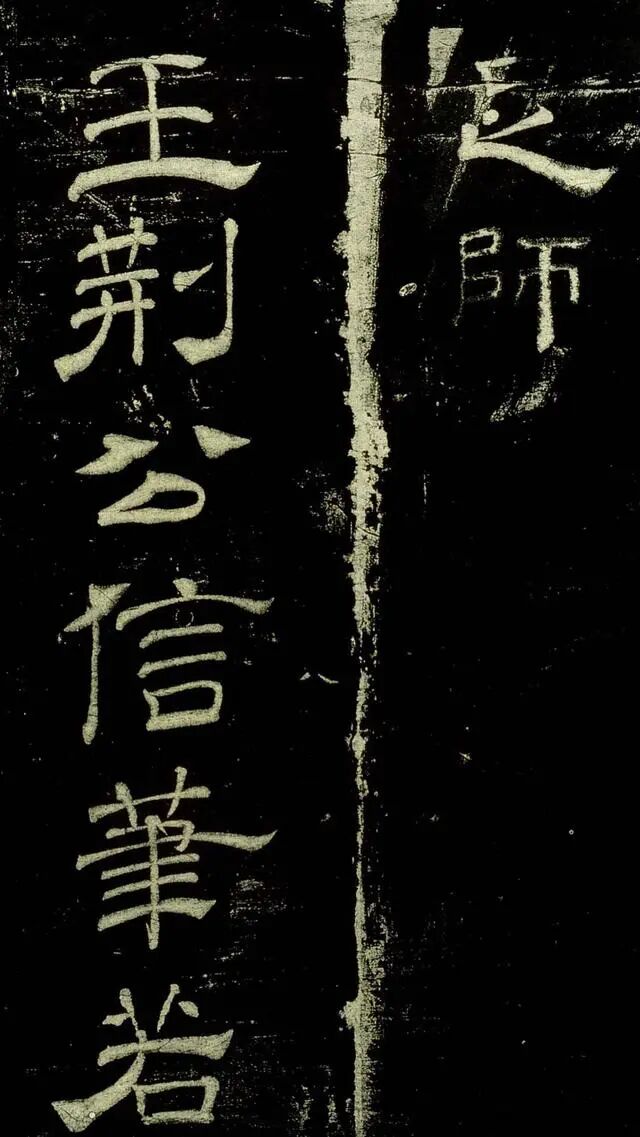 師
王荆公信筆若